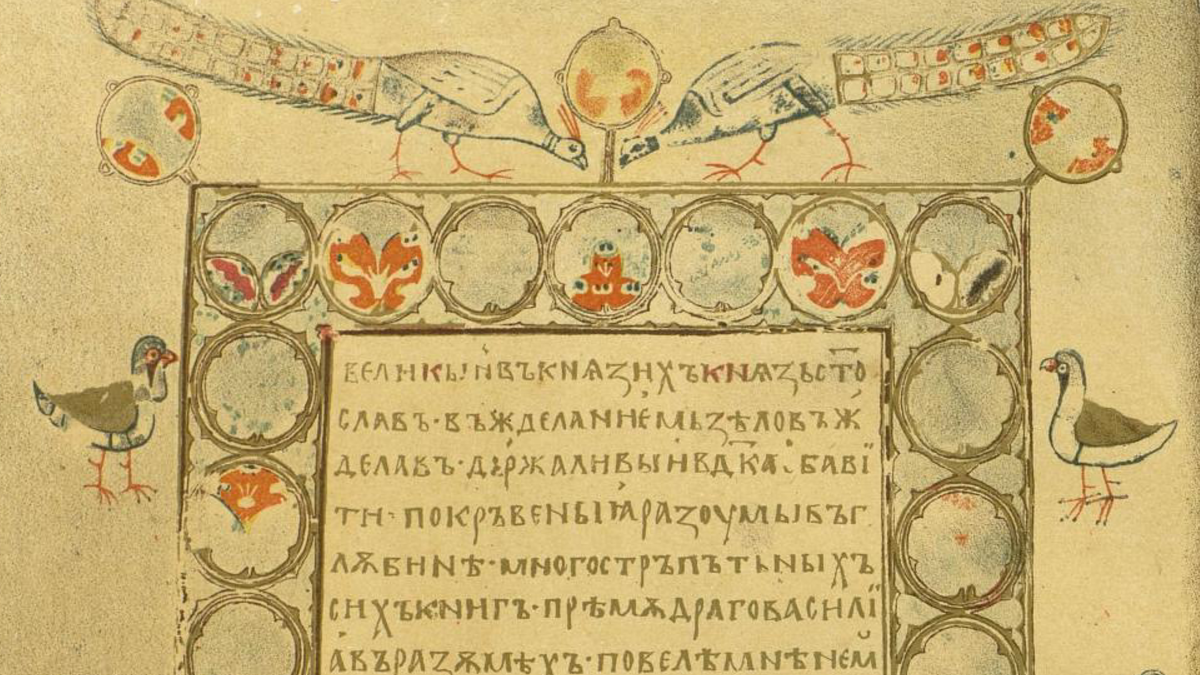 ВЕЛИКЫИВЪКНѦЗИХЪКНѦЗЬСТО
СЛАВЪ·ВЪЖДЕЛАНИЕМЬЗѢЛОВЪЖ
ДЕЛАВЪ·ДЬРЖАЛИВЫИВДКА·БАВІ
ТИ·ПОКРЪВЕНЫІꙖРАЗОУМЫІВЪГ
ЛѪБИНѢ·МНОГОСТРЪПЪТЬНЫХЪ
СИХЪКЪНИГЪ·ПРѢМѪДРАГОВАСИЛІ
АВЪРАЗѪМѢХЪ·ПОВЕЛѢМНѢНЕМ